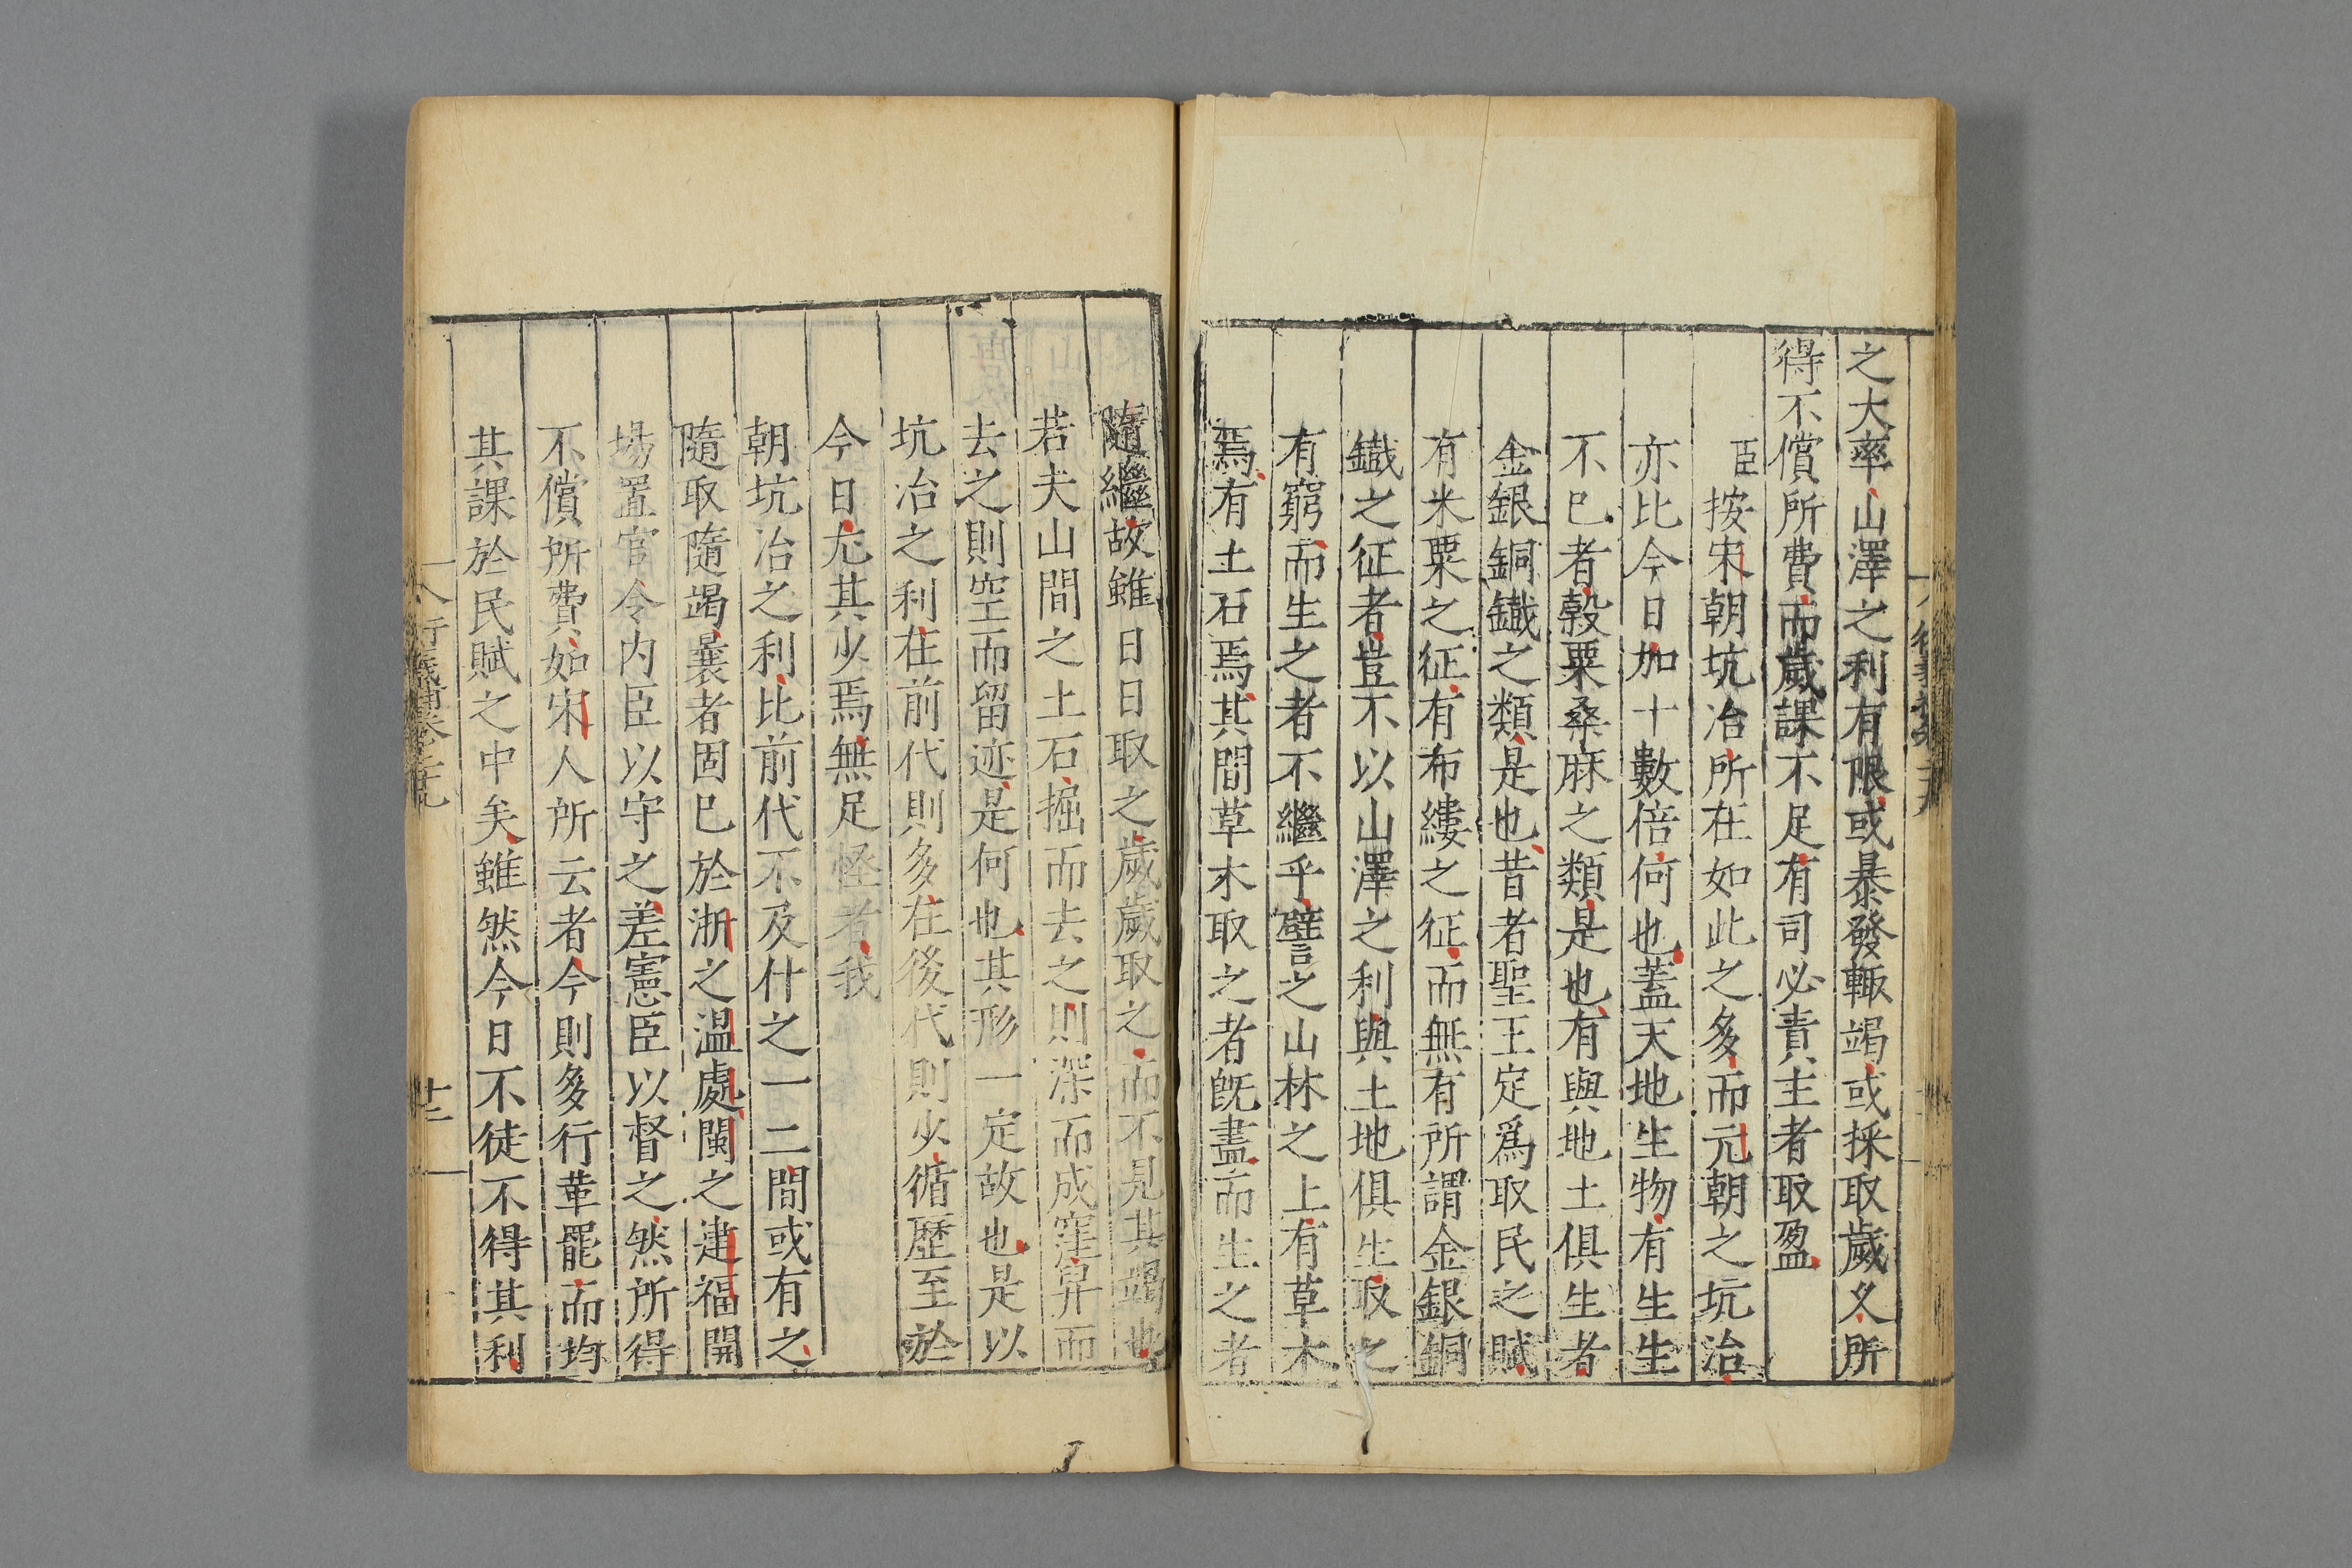 之大率山澤之利有限或暴發輙竭或採取歲久所
得不償所費而歲課不足有司必責主者取盈
臣按宋朝坑冶所在如此之多而元朝之坑冶
亦比今日加十數倍何也蓋天地生物有生生
不已者穀粟桑麻之類是也有與地土俱生者
金銀銅鐵之類是也昔者聖王定爲取民之賦
有米粟之征有布縷之征而無有所謂金銀銅
鐵之征者豈不以山澤之利與土地俱生取之
有窮而生之者不繼乎譬之山林之上有草木
焉有土石焉其間草木取之者旣盡而生之者
隨繼故雖日日取之歲歲取之而不見其竭也
若夫山間之土石掘而去之則深而成窪穽而
去之則空而留迹是何也其形一定故也是以
坑冶之利在前代則多在後代則少循歷至於
今日尤其少焉無足怪者我
朝坑冶之利比前代不及什之一二間或有之
隨取隨竭曩者固已於浙之温處閩之建福開
場置官令内臣以守之差憲臣以督之然所得
不償所費如宋人所云者今則多行革罷而均
其課於民賦之中矣雖然今日不徒不得其利
行義補卷二十九
十二